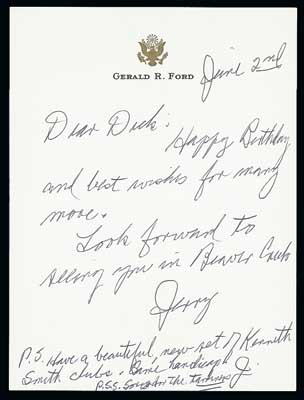 GERALD R. FORD
June 2nd
Dear Dick:
Happy Birthday
and best wishes for many
more.
Look forward to
seeing you in Beaver Creek
Jerry
P.S. Have a beautiful, new set of Kenneth
Smith clubs. Same handicap
P.S.S. Sorry for the J.